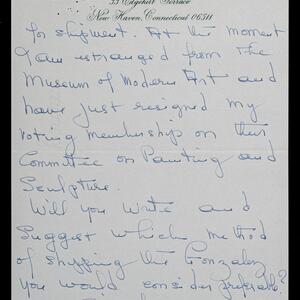 55 Edgehill Terrace
New Haven, Connecticut 06511
for shipment. At this moment
I am estranged from the
Museum of Modern Art and
have just resigned my
voting membership on their
Committee on Painting and
Sculpture.
Will you write and
suggest which method
of shipping this Gonzalez
you would consider preferable?